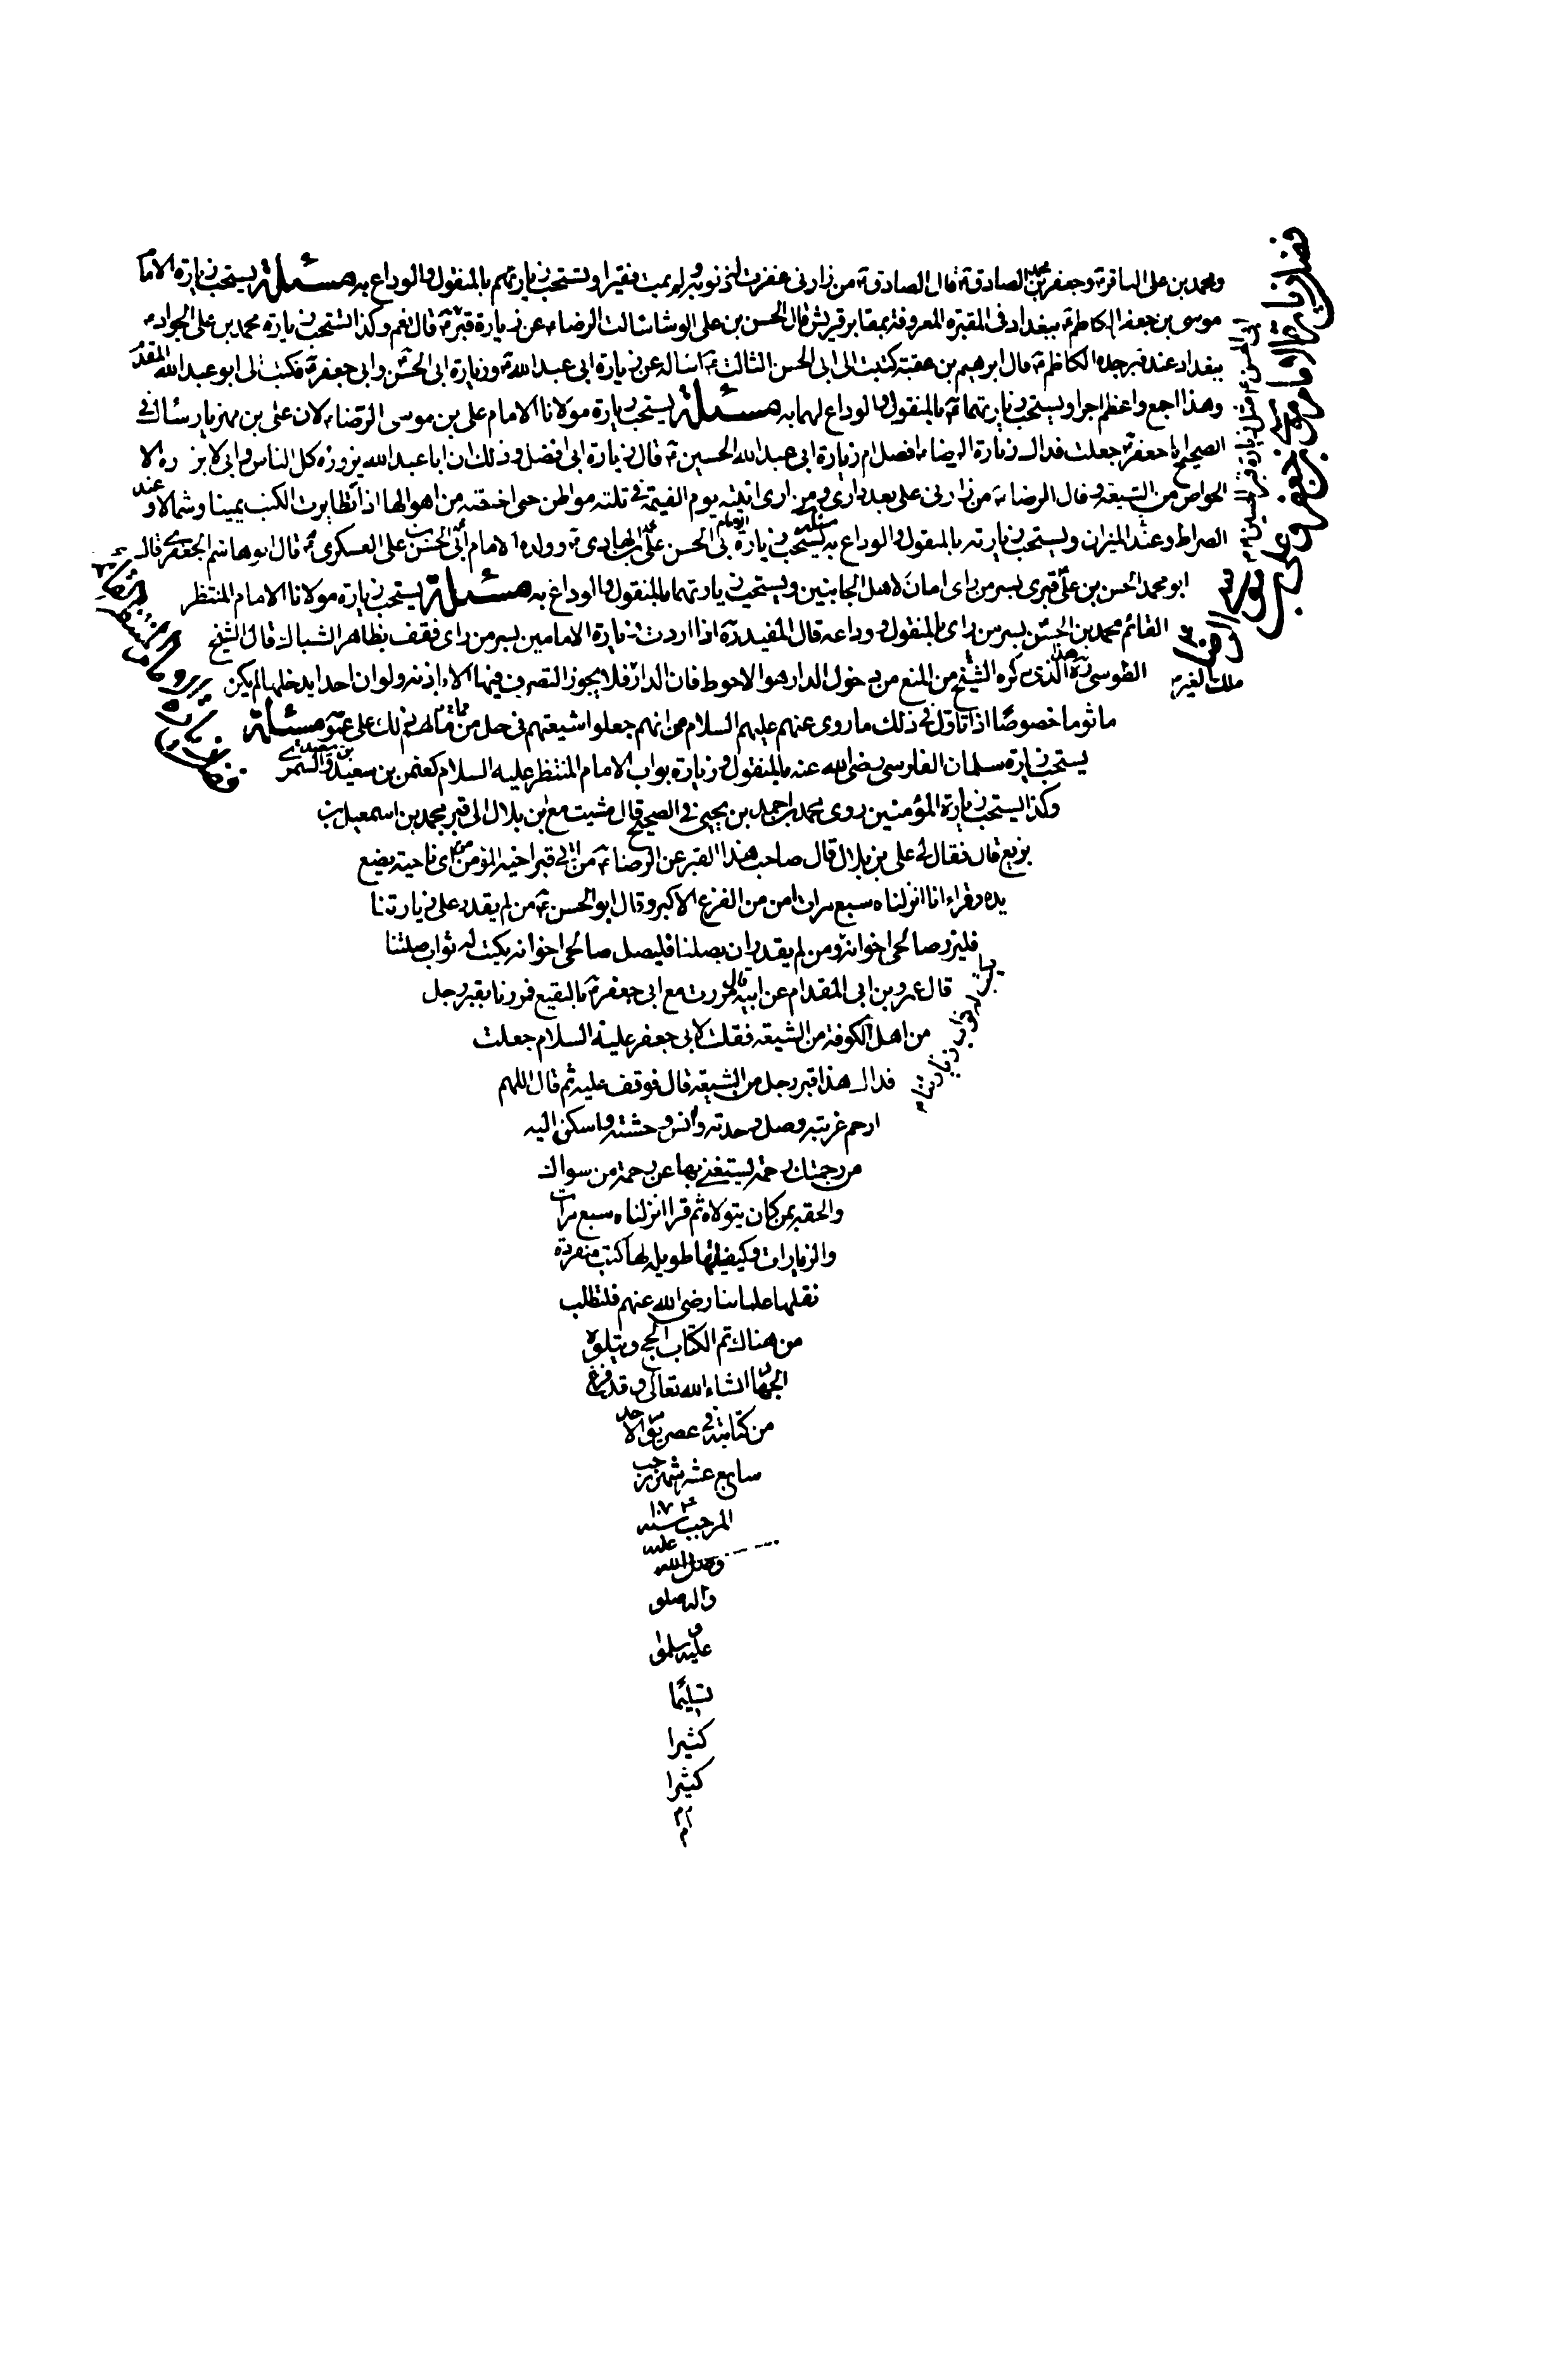 ومحمد بن علي الباقر ع وجعفر بن محمد الصادق ع قال الصادق ع من زارني غفرت له ذنوبه ولم يمت فقيرا وتستحب زيارتهم بالمنقول والوداع به مسئلة يستحب زيارة الامام
موسى بن جعفر الكاظم ع ببغداد في المقبرة المعروفة بمقابر قريش قال الحسن بن علي الوشا سالت الرضا ع عن زيارة قبر قال نعم وكذا تستحب زيارة محمد بن علي الجواد ع
ببغداد عند قبر جده الكاظم ع قال ابرهيم بن عقبة كتبت الى ابي الحسن الثالث ع اساله عن زيارة ابي عبد الله ع وزيارة ابي الحسن وابي جعفر ع فكتب الى ابو عبد الله المقدم
وهذا اجمع واعظم اجرا ويستحب زيارتهما ع بالمنقول والوداع لهما به مسئلة يستحب زيارة مولانا الامام علي بن موسى الرضا ع لان علي بن مهزيار سئال في
الصحيح ابا جعفر ع جعلت فداك زيارة الرضا ع افضل ام زيارة ابي عبد الله الحسين ع قال زيارة ابي افضل وذلك ان ابا عبد الله يزوره كل الناس وابي لا يزوره الا
الخواص من الشيعة وقال الرضا ع من زارني على بعد داري ومزاري اتيته يوم القيمة في ثلثة مواطن حتى اخلصه من اهوالها اذا تطايرت الكتب يمينا وشمالا وعند
الصراط وعند الميزان ويستحب زيارته بالمنقول والوداع به مسئلة يستحب زيارة الامام ابي الحسن علي الهادي ع وولده الامام ابي الحسن بن علي العسكري ع قال ابو هاشم الجعفري قال
ابو محمد الحسن بن علي ع قبري بسر من راى امان لاهل الجانبين ويستحب زيارتهما بالمنقول والوداع به مسئلة يستحب زيارة مولانا الامام المنتظر
القائم محمد بن الحسن بسر من راى بالمنقول ووداعه قال المفيد ره اذا اردت زيارة الامامين بسر من راى فقف بظاهر الشباك قال الشيخ
الطوسي ره هذا الذي ذكره الشيخ من المنع من دخول الدار هو الاحوط فان الدار فلا يجوز التصرف فيها الا باذنه ولو ان احدا يدخلها لم يكن
ماثوما خصوصا اذا تاول في ذلك ما روى عنهم عليهم السلام من انهم جعلوا شيعتهم في حل من مالهم وذلك على عمومه مسئلة
يستحب زيارة سلمان الفارسي رضي الله عنه بالمنقول وزيارة بواب الامام المنتظر عليه السلام كعثمن بن سعيد والسمري
وكذا يستحب زيارة المؤمنين روى محمد بن احمد بن يحيى في الصحيح قال مشيت مع ابن بلال الى قبر محمد بن اسمعيل بن
بزيع قال فقال لي علي بن بلال قال صاحب هذا القبر عن الرضا ع من اتى قبر اخيه المؤمن من اي ناحية يضع
يده وقراء انا انزلناه سبع مرات امن من الفزع الاكبر وقال ابو الحسن ع من لم يقدر على زيارتنا
فليزر صالحي اخوانه ومن لم يقدر ان يصلنا فليصل صالحي اخوانه يكتب له ثواب صلتنا
يكتب له ثواب زيارتنا
قال عمرو بن ابي المقدام عن ابيه قال مررت مع ابي جعفر ع بالبقيع فمررنا بقبر رجل
من اهل الكوفة من الشيعة فقلت لابي جعفر عليه السلام جعلت
فداك هذا قبر رجل من الشيعة قال فوقف عليه ثم قال اللهم
ارحم غربته وصل وحدته وانس وحشته واسكن اليه
من رحمتك رحمة يستغني بها عن رحمة من سواك
والحقه بمن كان يتولاه ثم قرا انزلناه سبع مرات
والزيارات وكيفيتها طويلة لها كتب منفردة
نقلها علماءنا رضي الله عنهم فلتطلب
من هناك تم الكتاب الحج ويتلوه
الجهاد انشاء الله تعالى وقد فرغ
من كتابته في عصر يوم الاحد
سابع عشر شهر رجب
المرجب سنه ١٠٧٣
وصلى الله عليه
واله صلو
عليه وسلموا
تسليما
كثيرا
كثيرا
فضل زيارة الامام موسى بن جعفر وعلي بن موسى الرضا ع